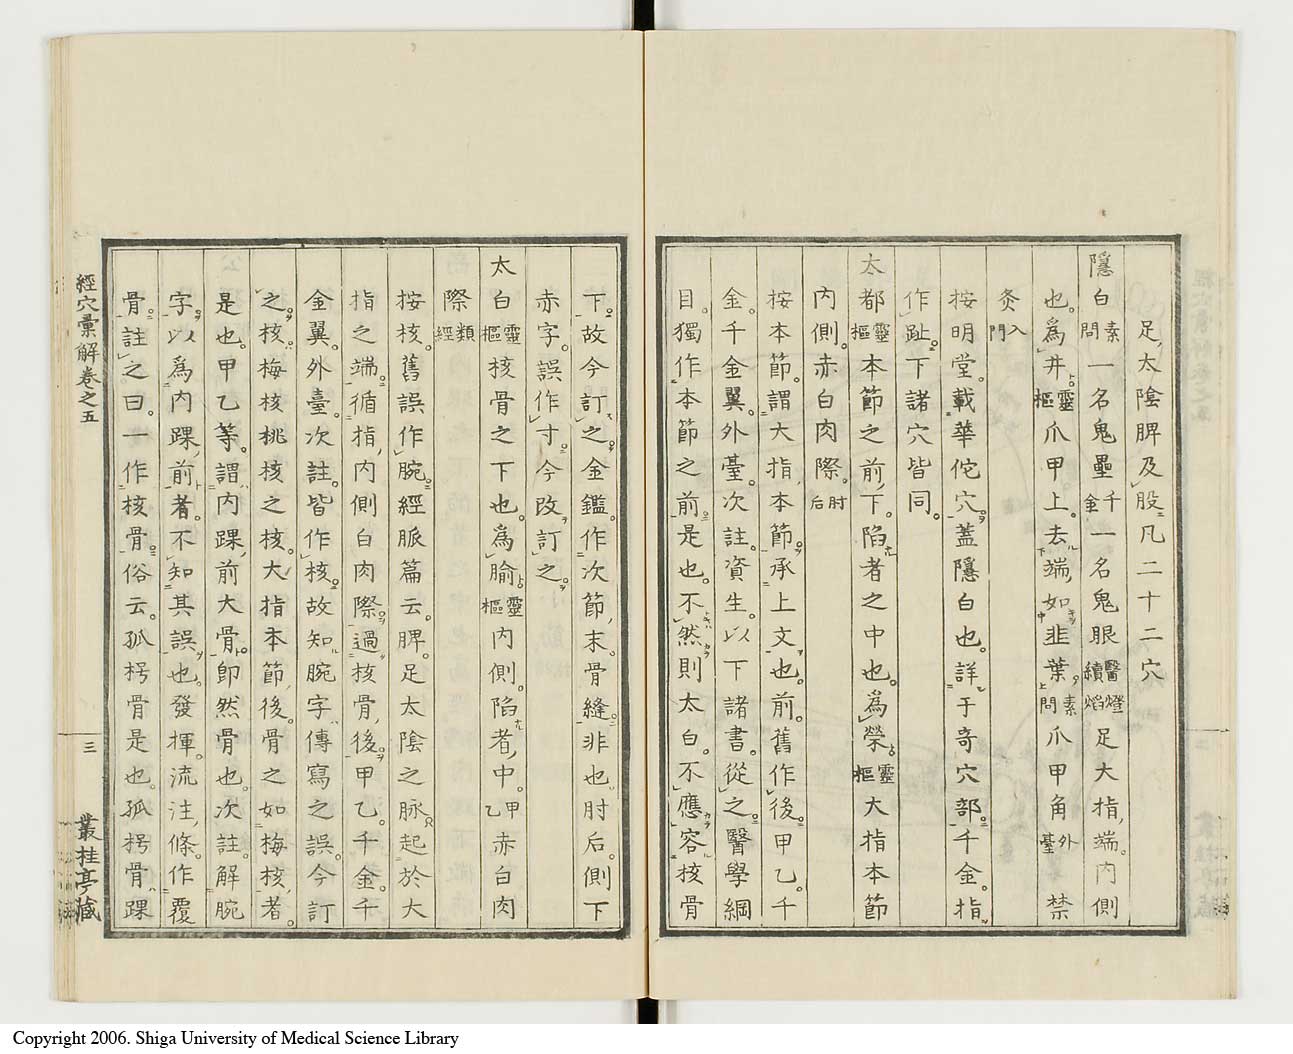 足太陰脾及股凡二十二穴
隱白素問一名鬼壘千金一名鬼眼醫燈續焰足大指端內側
也爲井靈樞爪甲上去端如韭葉素問爪甲角外臺禁
灸入門
按明堂載華佗穴蓋隱白也詳于奇穴部千金指
作趾下諸穴皆同
太都靈樞本節之前下陷者之中也爲榮靈樞大指本節
內側赤白肉際肘后
按本節謂大指本節承上文也前舊作後甲乙千
金千金翼外臺次註資生以下諸書從之醫學綱
目獨作本節之前是也不然則太白不應容核骨
下故今訂之金鑑作次節末骨縫非也肘后側下
赤字誤作寸今改訂之
太白靈樞核骨之下也爲腧靈樞內側陷者中甲乙赤白肉
際類經
按核舊誤作腕經脈篇云脾足太陰之脉起於大
指之端循指內側白肉際過核骨後甲乙千金千
金翼外臺次註皆作核故知腕字傳寫之誤今訂
之核梅核桃核之核大指本節後骨之如梅核者
是也甲乙等謂內踝前大骨卽然骨也次註解腕
字以爲內踝前者不知其誤也發揮流注條作覆
骨註之曰一作核骨俗云孤枴骨是也孤枴骨踝
經穴彙解卷之五
三
叢桂亭藏
Copyright 2006. Shiga University of Medical Science Library